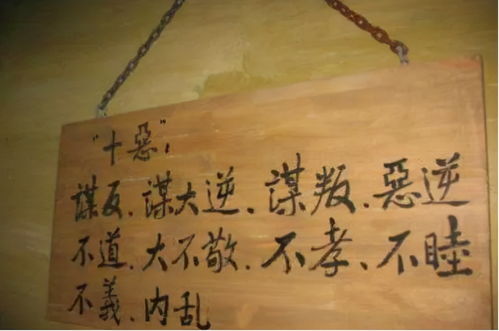 “十惡”:
謀反、謀大逆、謀叛、惡逆
不道、大不敬、不孝、不睦
不義、内乱